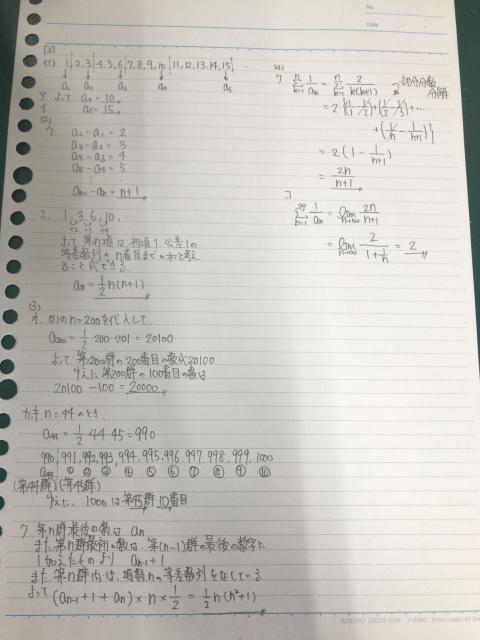 No.
Date
[3]
(1) 1 | 2, 3 | 4, 5, 6 | 7, 8, 9, 10 | 11, 12, 13, 14, 15 |
↓ ↓ ↓ ↓ ↓
a₁ a₂ a₃ a₄ a₅
ア よって a₄ = 10
イ a₅ = 15
(2)
ウ
a₂ - a₁ = 2
a₃ - a₂ = 3
a₄ - a₃ = 4
a₅ - a₄ = 5
⋮
aₙ₊₁ - aₙ = n+1
エ. 1, 3, 6, 10, ...
+2 +3 +4
よって 第n項は、初項1. 公差1の
等差数列の n番目までの和と考え
ることができる.
∴ aₙ = 1/2 n(n+1)
(3)
オ. (2)のn=200を代入して
a₂₀₀ = 1/2・200・201 = 20100
よって 第200群の200番目の数が20100
ゆえに 第200群の100番目の数は
20100 - 100 = 20000
カ, キ n=44 のとき、
a₄₄ = 1/2・44・45 = 990
990 | 991, 992, 993, 994, 995, 996, 997, 998, 999, 1000
a₄₄ ① ② ③ ④ ⑤ ⑥ ⑦ ⑧ ⑨ ⑩
(第44群) (第45群)
ゆえに、1000は第45群10番目
ク. 第n群最後の数は aₙ
また、第n群最初の数は、第(n-1)群の最後の数字に
1加えたものより aₙ₋₁+1
また 第n群内は、項数nの等差数列をなしている
よって (aₙ₋₁+1+aₙ)×n×1/2 = 1/2 n(n²+1)
(4)
ケ nΣk=1 1/aₖ = nΣk=1 2/k(k+1) 部分分数
分解
= 2{(1/1 - 1/2)+(1/2 - 1/3)+...
+(1/n - 1/n+1)}
= 2(1 - 1/n+1)
= 2n/n+1
コ
∞Σn=1 1/aₙ = lim n→∞ 2n/n+1
= lim n→∞ 2/1+1/n = 2